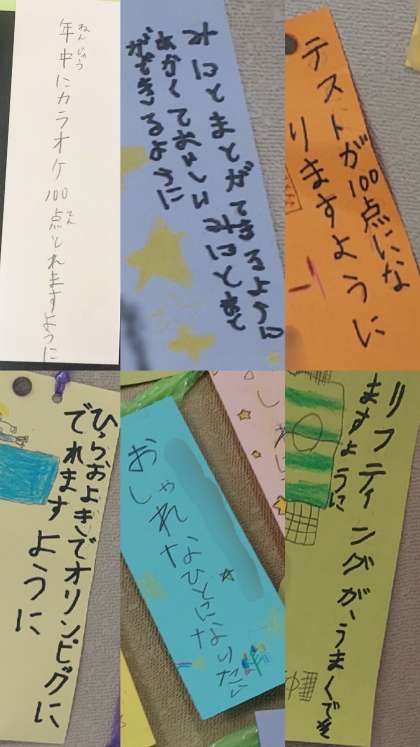 年中にカラオケ100点とれますように
ねんじゅう
てん
みにとまとができるように
あかくておいしいみにとまと
ができるように
テストが100点にな
りますように
ひらおよぎでオリンピグに
でれますように
おしゃれなひとになりたい
リフティングがうまくでき
ますように